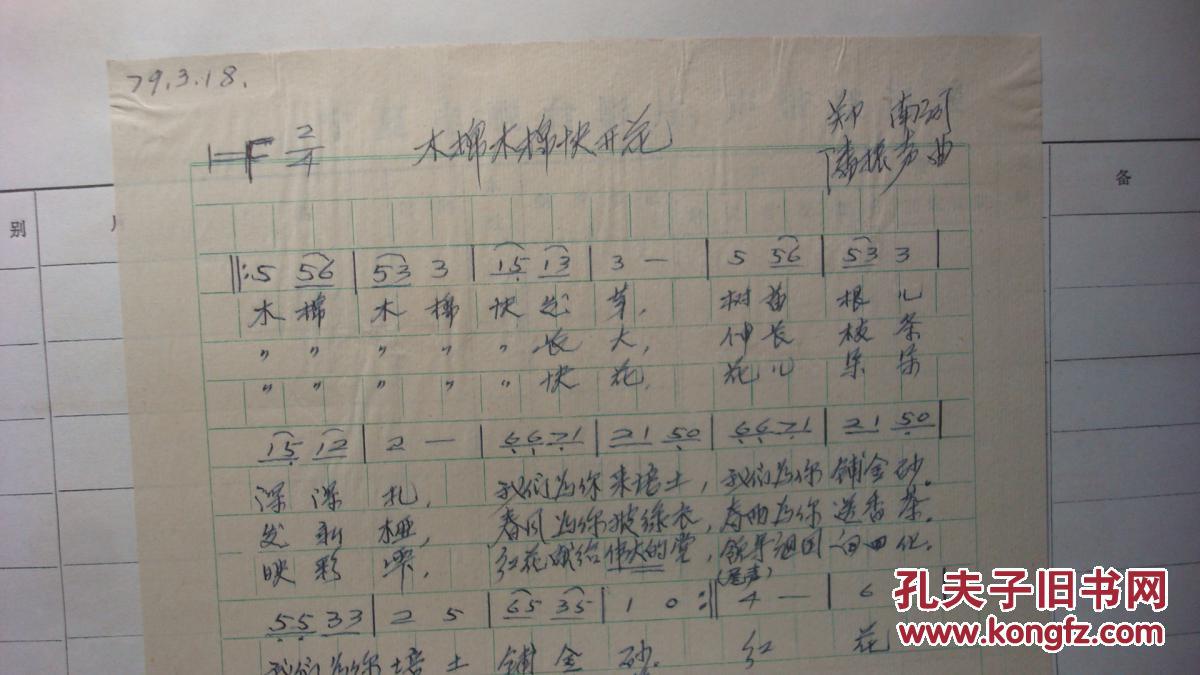 79.3.18.
1=F 2/4
木棉木棉快开花
郑南词
曲
别
备
‖: 5 56 | 53 3 | 15 13 | 3 — | 5 56 | 53 3 |
木棉 木棉 快发芽, 树苗 根儿
〃 〃 〃 〃 〃 长大, 伸长 枝条
〃 〃 〃 〃 〃 快花, 花儿 朵朵
15 12 | 2 — | 6671 | 21 50 | 6671 | 21 50 |
深深扎, 我们为你来培土, 我们为你铺金砂。
发新桠, 春风为你披绿衣, 春雨为你送香茶。
映彩 红花献给伟大的党, 领导祖国 四化。
(尾声)
55 33 | 2 5 | 65 35 | 1 0 :‖ 4 — | 6
我们为你培土 铺金砂。 红 花
孔夫子旧书网
www.kongfz.com